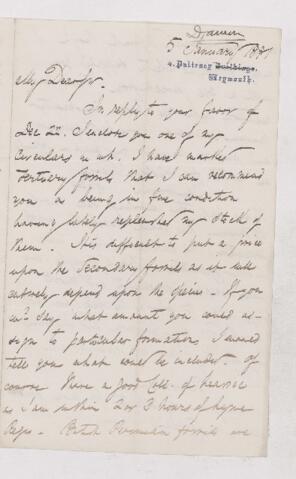 5 January 188
4, Pulteney Buildings,
Weymouth.
My Dear Sir
In reply to your favor of
Dec 22. I enclose you one of my
Circulars in wh. I have marked
Tertiary fossils that I can recommend
you as being in fine condition
having lately replenished my stock of
them. It is difficult to put a price
upon the Secondary fossils as it will
entirely depend upon the species. If you
cd. say what amount you could as-
sign to particular formations I would
tell you what could be included. Of
course I have a good coll. of
as I am within 2 or 3 hours of Lyme
Regis. British Permian fossils are